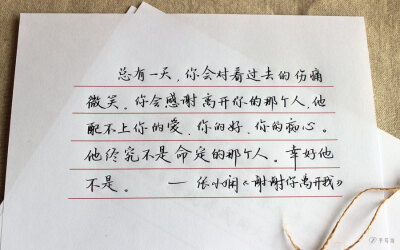 总有一天，你会对着过去的伤痛
微笑。你会感谢离开你的那个人，他
配不上你的爱、你的好、你的痴心。
他终究不是命定的那个人。幸好他
不是。 — 张小娴《谢谢你离开我》
手写海